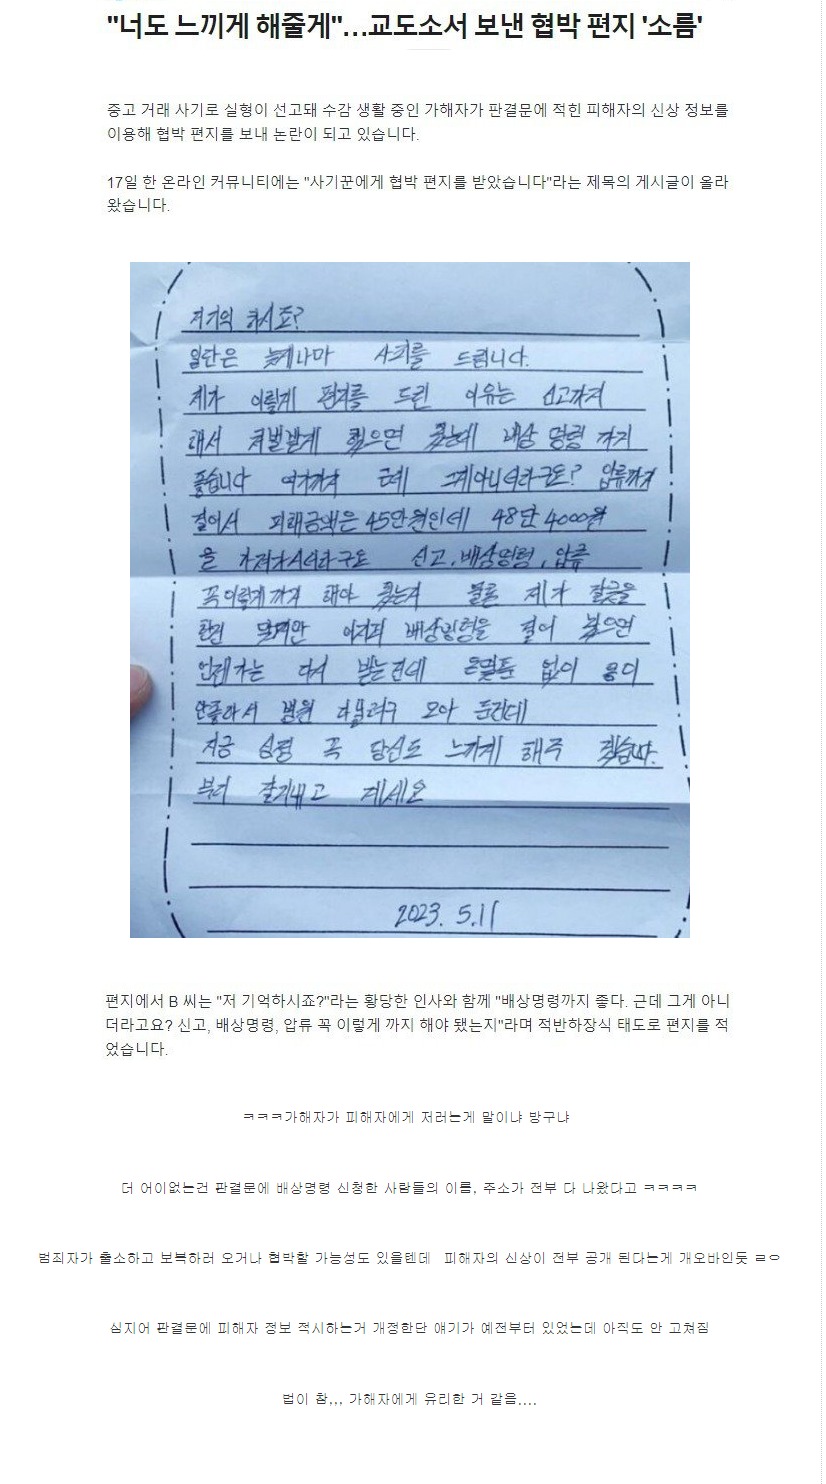 "너도 느끼게 해줄게"…교도소서 보낸 협박 편지 '소름'
중고 거래 사기로 실형이 선고돼 수감 생활 중인 가해자가 판결문에 적힌 피해자의 신상 정보를
이용해 협박 편지를 보내 논란이 되고 있습니다.
17일 한 온라인 커뮤니티에는 "사기꾼에게 협박 편지를 받았습니다"라는 제목의 게시글이 올라
왔습니다.
저기억 하시죠?
일단은 늦게나마 사죄를 드립니다.
제가 이렇게 편지를 드린 이유는 신고까지
해서 처벌받게 했으면 됐는데 배상 명령 까지
좋습니다 여기까지 근데 그게아니더라구요? 압류까지
걸어서 피해금액은 45만원인데 48만 4000원
을 가져가시더라구요 신고, 배상명령, 압류
꼭이렇게까지 해야 됐는지 물론 제가 잘못을
한건 맞지만 어차피 배상명령을 걸어 놨으면
언제가는 다시 받는건데 은행돈 없이 용이
안좋아서 병원 다닐려구 모아 둔건데
지금 심정 꼭 당신도 느끼게 해주 겠습니다.
부디 잘지내고 계세요
2023. 5.11
편지에서 B 씨는 "저 기억하시죠?"라는 황당한 인사와 함께 "배상명령까지 좋다. 근데 그게 아니
더라고요? 신고, 배상명령, 압류 꼭 이렇게 까지 해야 됐는지"라며 적반하장식 태도로 편지를 적
었습니다.
ㅋㅋㅋ가해자가 피해자에게 저러는게 말이냐 방구냐
더 어이없는건 판결문에 배상명령 신청한 사람들의 이름, 주소가 전부 다 나왔다고 ㅋㅋㅋㅋ
범죄자가 출소하고 보복하러 오거나 협박할 가능성도 있을텐데 피해자의 신상이 전부 공개 된다는게 개오바인듯 ㄹㅇ
심지어 판결문에 피해자 정보 적시하는거 개정한단 얘기가 예전부터 있었는데 아직도 안 고쳐짐
법이 참,,, 가해자에게 유리한 거 같음....